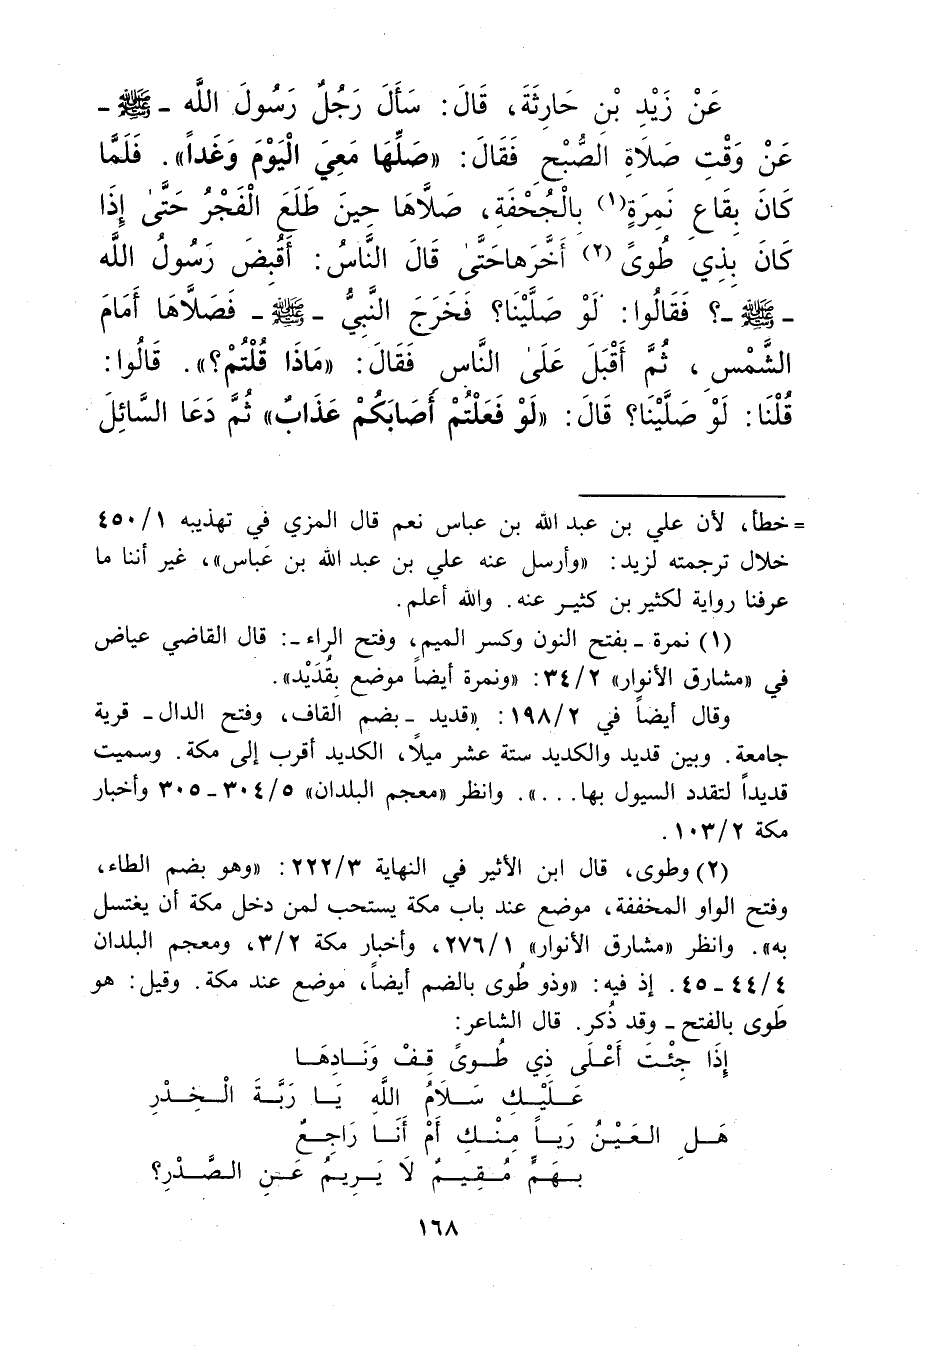 عَنْ زَيْدِ بْنِ حَارِثَةَ، قَالَ: سَأَلَ رَجُلٌ رَسُولَ اللَّه - ﷺ -
عَنْ وَقْتِ صَلَاةِ الصُّبْحِ فَقَالَ: «صَلِّهَا مَعِيَ الْيَوْمَ وَغَداً». فَلَمَّا
كَانَ بِقَاعِ نَمِرَةَ(١) بِالْجُحْفَةِ، صَلَّاهَا حِينَ طَلَعَ الْفَجْرُ حَتَّىٰ إِذَا
كَانَ بِذِي طُوىً (٢) أَخَّرَهاحَتَّىٰ قَالَ النَّاسُ: أَقُبِضَ رَسُولُ اللَّه
- ﷺ -؟ فَقَالُوا: لَوْ صَلَّيْنَا؟ فَخَرَجَ النَّبِيُّ - ﷺ - فَصَلَّاهَا أَمَامَ
الشَّمْسِ، ثُمَّ أَقْبَلَ عَلَىٰ النَّاسِ فَقَالَ: «مَاذَا قُلْتُمْ؟». قَالُوا:
قُلْنَا: لَوْ صَلَّيْنَا؟ قَالَ: «لَوْ فَعَلْتُمْ أَصَابَكُمْ عَذَابٌ» ثُمَّ دَعَا السَّائِلَ
= خطأ، لأن علي بن عبد الله بن عباس نعم قال المزي في تهذيبه ٤٥٠/١
خلال ترجمته لزيد: «وأرسل عنه علي بن عبد الله بن عَباس»، غير أننا ما
عرفنا رواية لكثير بن كثير عنه. والله أعلم.
(١) نمرة - بفتح النون وكسر الميم، وفتح الراء -: قال القاضي عياض
في «مشارق الأنوار» ٣٤/٢: «ونمرة أيضاً موضع بقُدَيْد».
وقال أيضاً في ١٩٨/٢: «قديد - بضم القاف، وفتح الدال - قرية
جامعة. وبين قديد والكديد ستة عشر ميلاً، الكديد أقرب إلى مكة. وسميت
قديداً لتقدد السيول بها...». وانظر «معجم البلدان» ٣٠٤/٥ - ٣٠٥ وأخبار
مكة ١٠٣/٢.
(٢) وطوى، قال ابن الأثير في النهاية ٢٢٢/٣: «وهو بضم الطاء،
وفتح الواو المخففة، موضع عند باب مكة يستحب لمن دخل مكة أن يغتسل
به». وانظر «مشارق الأنوار» ٢٧٦/١، وأخبار مكة ٣/٢، ومعجم البلدان
٤٤/٤ - ٤٥. إذ فيه: «وذو طُوى بالضم أيضاً، موضع عند مكة. وقيل: هو
طَوى بالفتح - وقد ذُكر. قال الشاعر:
إِذَا جِئْتَ أَعْلَى ذِي طُوىً قِفْ وَنَادِهَا
عَلَيْكِ سَلَامُ اللَّهِ يَا رَبَّةَ الْخِدْرِ
هَلِ العَيْنُ رَيـاً مِنْكِ أَمْ أَنَا رَاجِعٌ
بِهَمٍّ مُقِيمٍ لَا يَرِيمُ عَنِ الصَّدْرِ؟
١٦٨